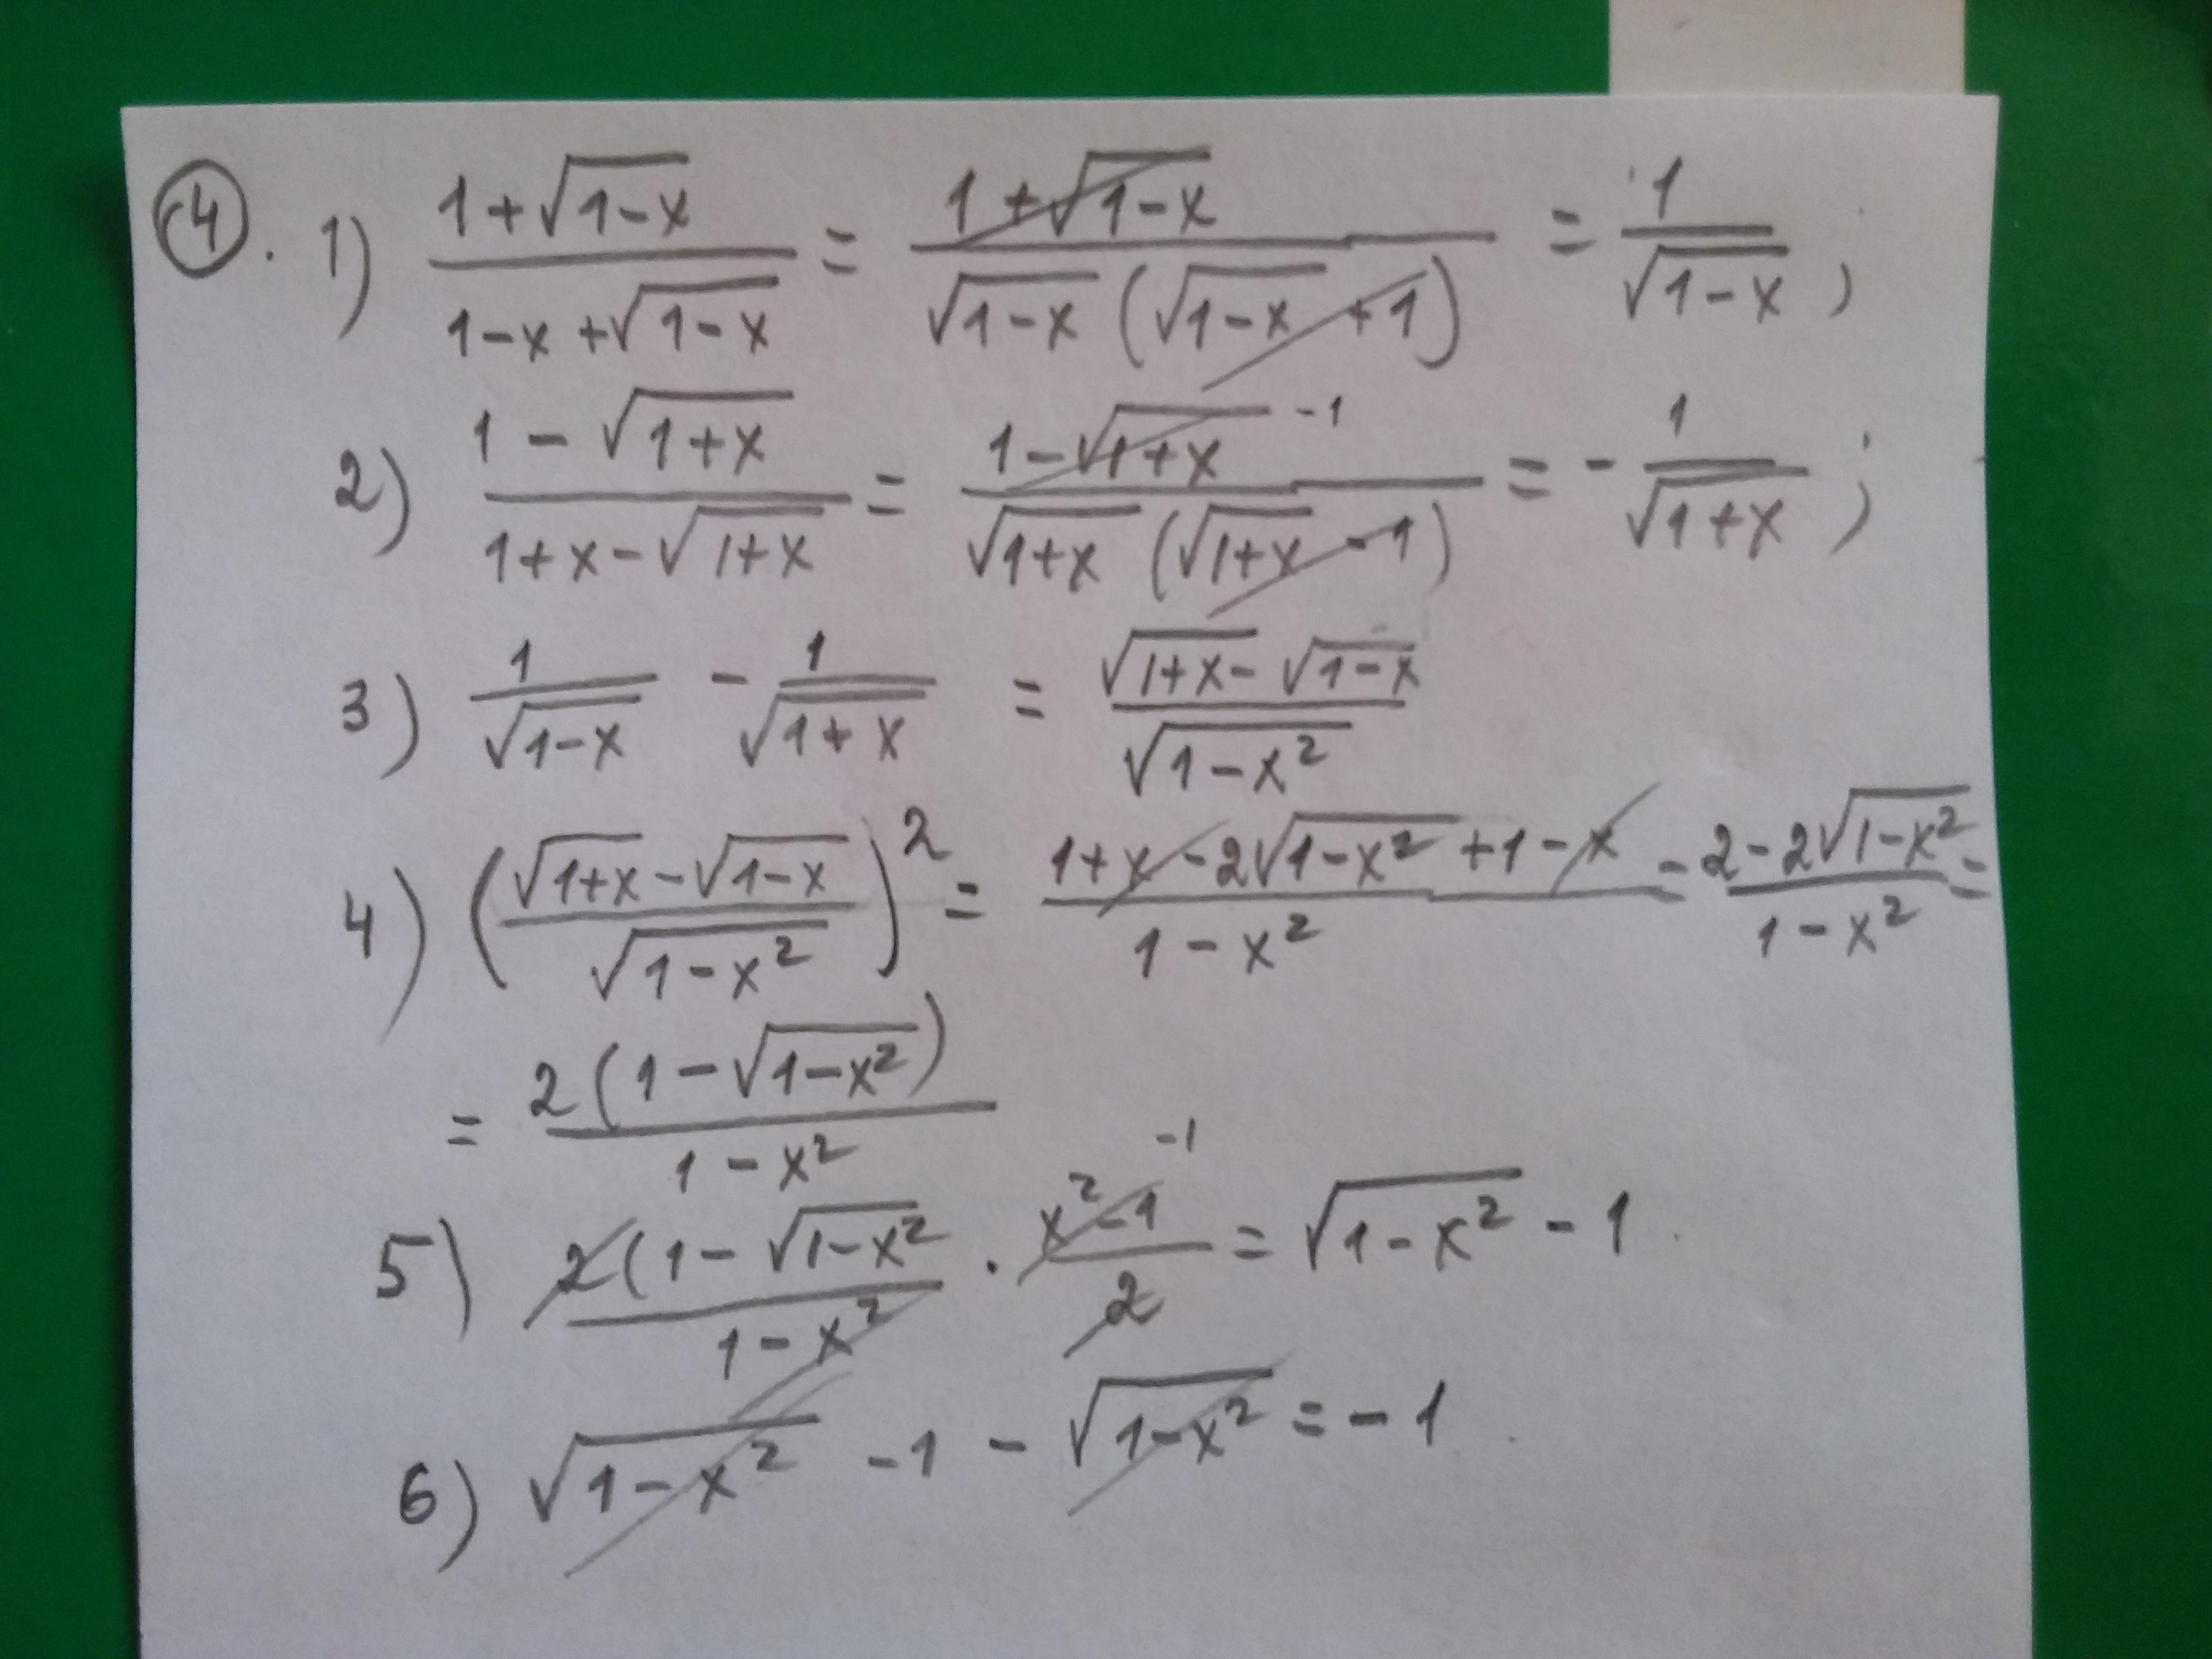 4. 1) (1+√(1-x))/(1-x+√(1-x)) = (1+√(1-x))/(√(1-x) (√(1-x) +1)) = 1/√(1-x) ;
2) (1-√(1+x))/(1+x-√(1+x)) = (1-√(1+x))^-1/(√(1+x) (√(1+x) -1)) = - 1/√(1+x) ;
3) 1/√(1-x) - 1/√(1+x) = (√(1+x) - √(1-x))/√(1-x²)
4) ((√(1+x) - √(1-x))/√(1-x²))² = (1+x-2√(1-x²)+1-x)/(1-x²) = (2-2√(1-x²))/(1-x²) =
= 2(1-√(1-x²))/(1-x²)
5) 2(1-√(1-x²)/(1-x²) · (x²-1)^-1/2 = √(1-x²) - 1.
6) √(1-x²) -1 - √(1-x²) = -1.